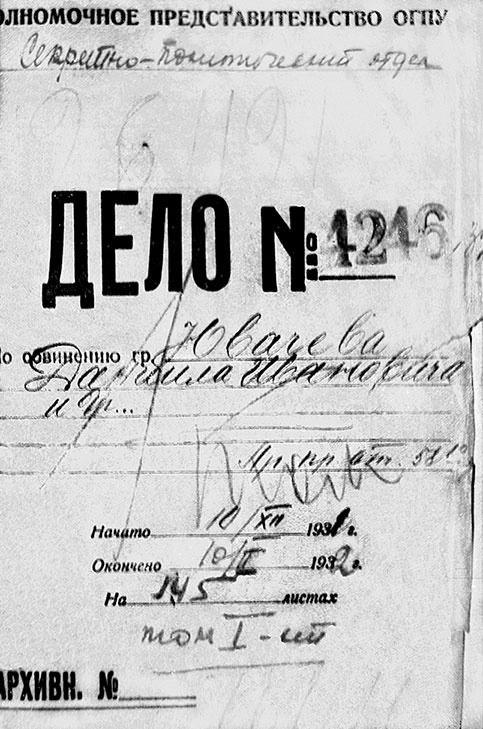 ОЛНОМОЧНОЕ ПРЕДСТАВИТЕЛЬСТВО ОГПУ
Секретно-политический отдел
ДЕЛО № 4246
о обвинению гр. Ювачева
Даниила Ивановича
и др...
пр. ст. 58 10
Начато 10/XII 1931 г.
Окончено 10/II 1932 г.
На 145 листах
том I-ый
АРХИВН. №